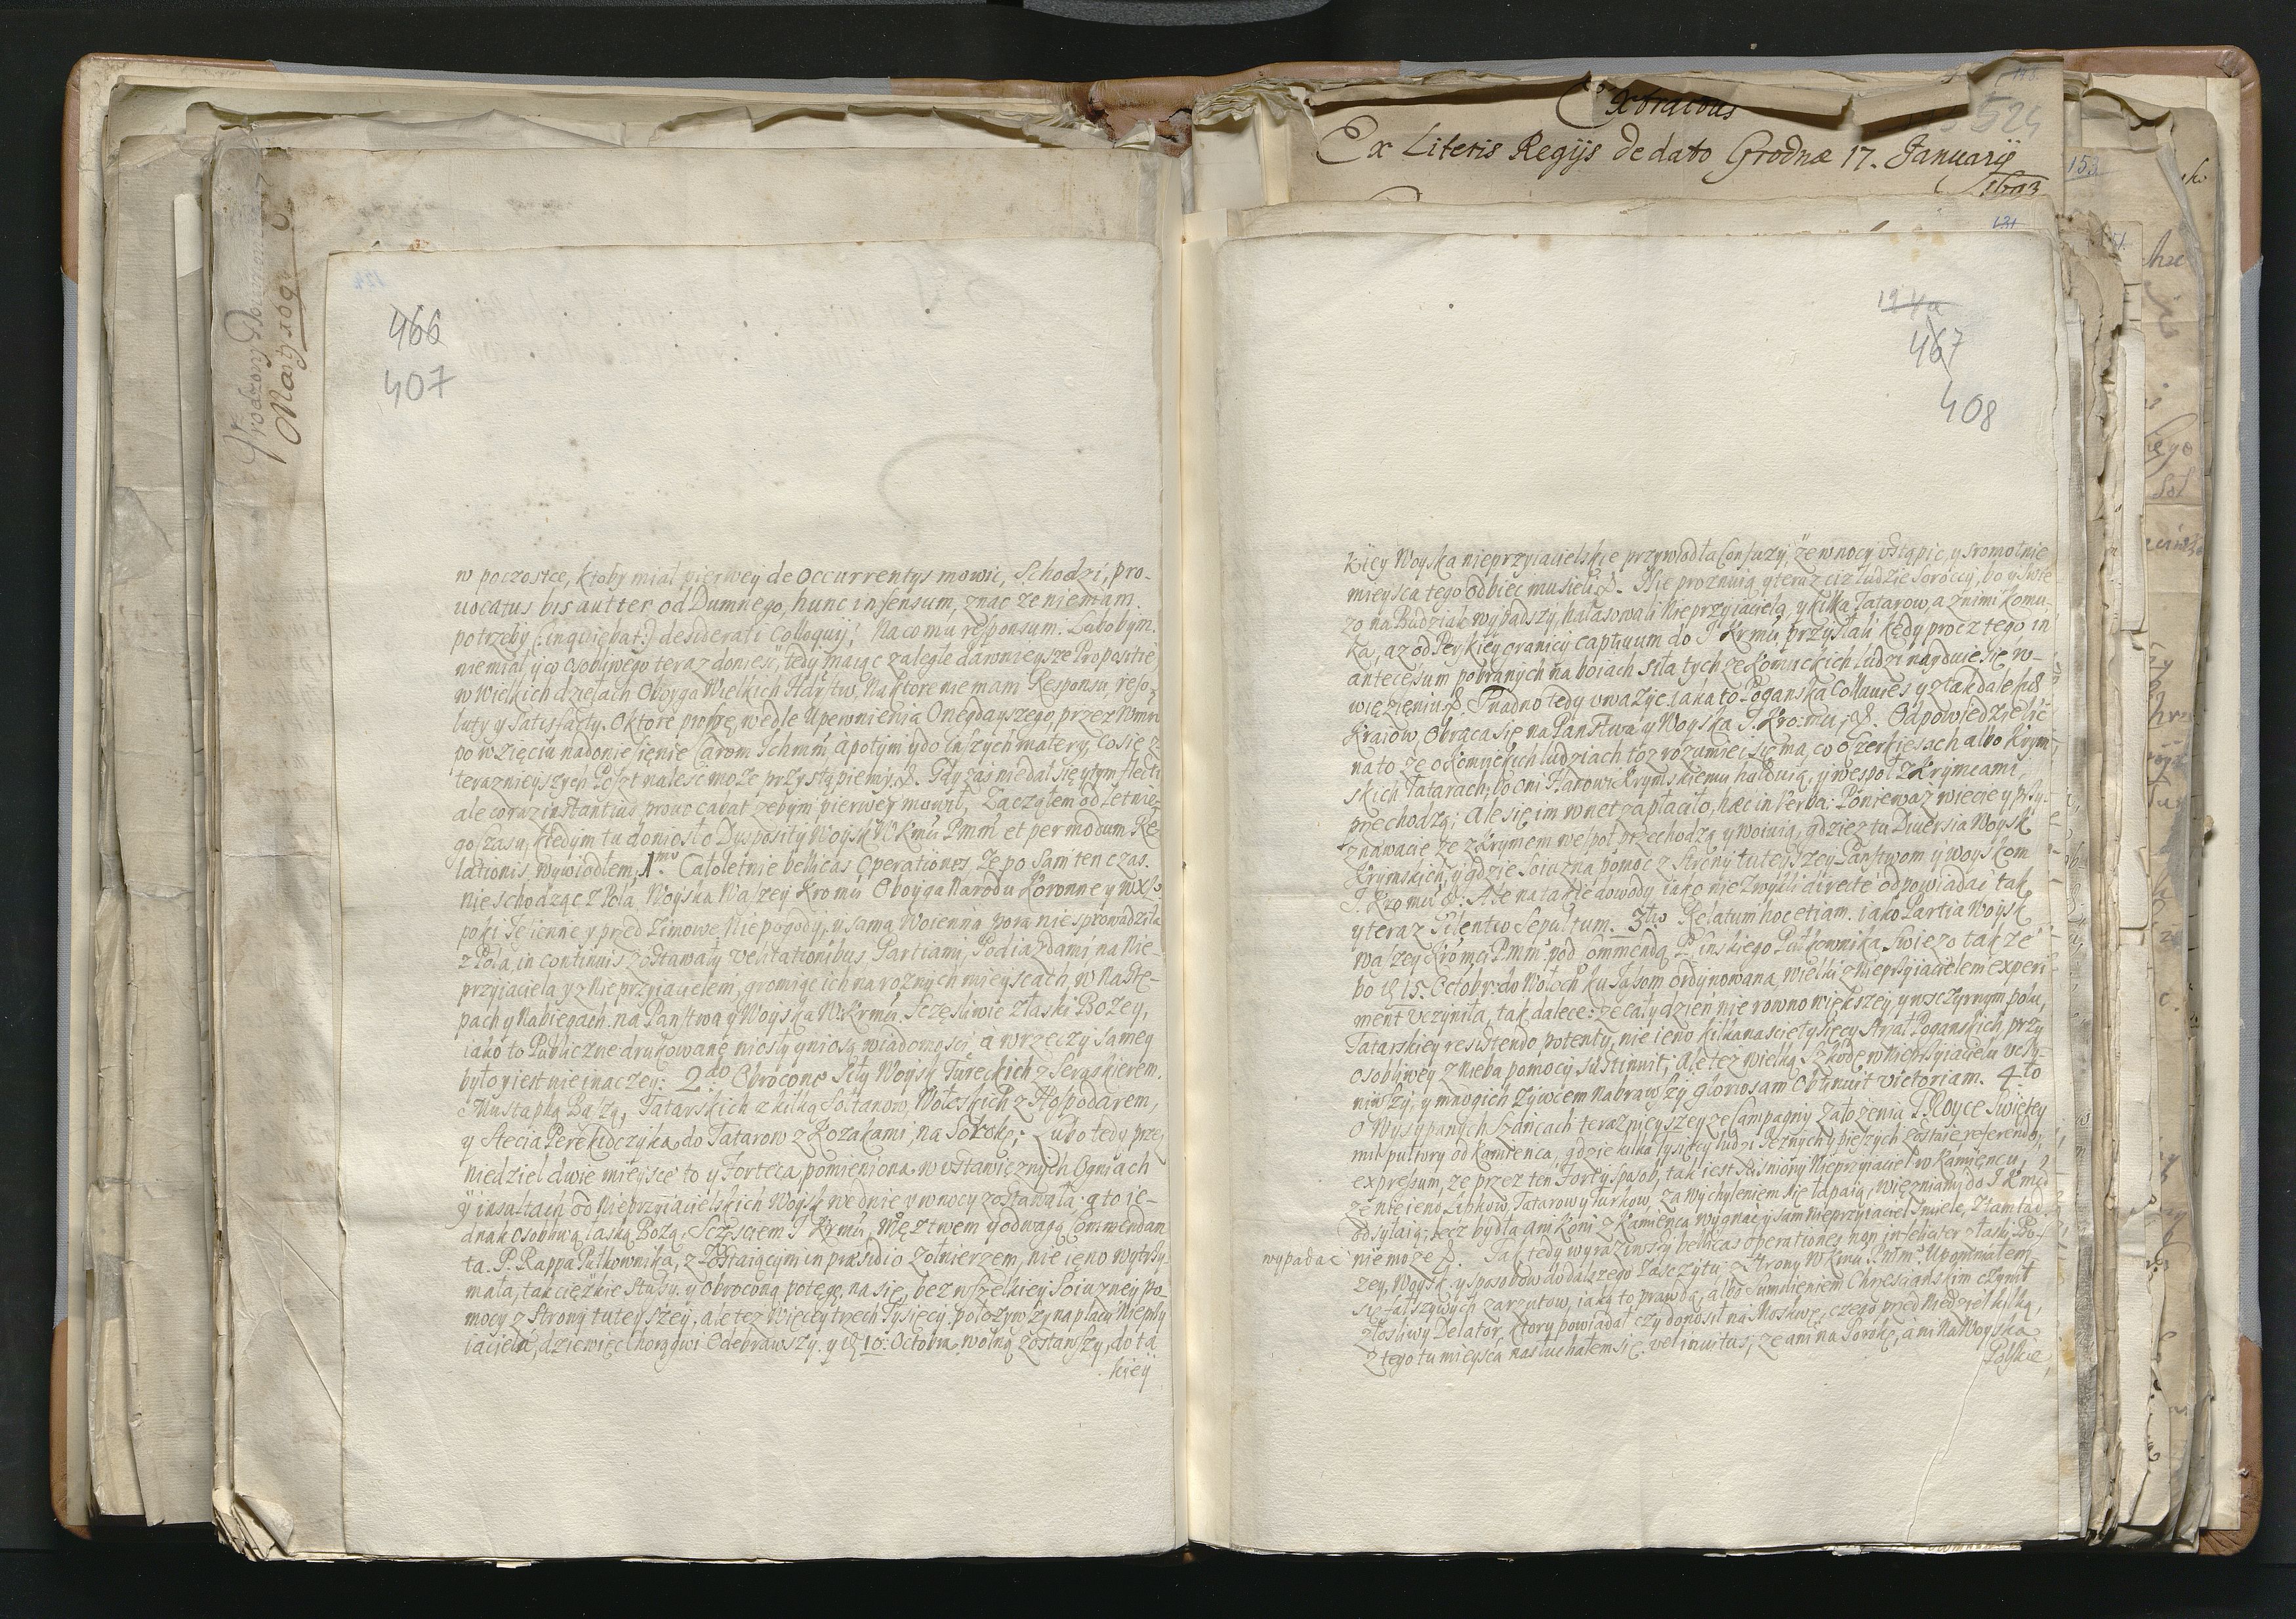 Extractus
Ex Literis Regijs de dato Grodnæ 17. Januarij
524
153
131
466
407
w poczostce, ktoby miał pierwey de Occurrentys mowic, Schodzi, pro-
uocatus bis aut ter od Dumnego, hunc in sensum, znac ze niemam
potrzeby (inquiebat:) desiderati Colloquij; Na co mu responsum. Lubobym
niemiał ÿ co osobliwego teraz doniesć, tedy maiąc zaległe dawnieysze Propositie
w Wielkich dziełach Oboyga Wielkich Hdrstw, Na ktore niemam Responsu, reso-
luty y Satisfacty. O ktore proszę, wedle Upewnienia Onegdayszego, przez
po wzięciu na doniesienie Carom Ichmm, a potym y do inszych matery, Co się z
teraznieyszych Poszt naleść może przystąpiemy. Gdy zaś niedał się y tym flecti
ale coraz instantius prouocabat zebym pierwey mowił, Zacząłem od letnie-
go czasu, kiedym tu doniosł o Dyspositÿ Woysk Kmu Pmm et per modum Re-
lationis, wywiodłem, 1mo. Całoletnie bellicas Operationes, Ze po sam ten czas
nie schodząc z Pola, Woyska Waszey Kromu Oboyga Narodu Koronne y WXL:
poki Jesienne y przed Zimowe Nie pogody, y sama Woienna pora nie sprowadziła
z Pola, in continuis zostawały velitationibus Partiami, Podiazdami na Nie-
przyiaciela y z Nieprzyiacielem, gromiąc ich na roznych mieyscach, w Nastę-
pach y Nabiegach na Państwa y Woyska W. Krmu. Sczęsliwie z łaski Bożey,
iako to Publiczne drukowane niosły y niosą wiadomosci, a w rzeczy samey
było y iest nie inaczey: 2do Obrocone Siły Woysk Tureckich z Seraskierem
Mustaphą Baszą, Tatarskich z kilką Sołtanow, Wołoskich z Hospodarem,
y Stecia Perekidczyka do Tatarow z Kozakami, na Sorokę; Lubo tedy przez
niedziel dwie mieysce to y Forteca pomieniona w ustawicznych Ogniach
ÿ insultach od Nieprzyiacielskich Woysk we dnie y w nocy zostawała; a to ie-
dnak osobliwą łaską Bożą, Sczęsciem J Krmu, Męztwem y odwagą Commendan
ta P. Rappa Pułkownika, z Zostaiącym in præsidio żołnierzem, nie ieno wytrzy-
mała, tak ciężkie szturmy y Obroconą potęgę na się, bez wszelkiey Soiuzney po-
mocy z Strony tuteyszey, ale tez Więcey trzech Tysięcy położywszy na placu Nieprzy
iaciela, dziewięc Chorągwi Odebrawszy. y d 10. Octobra wolną zostawszy, do ta
kieÿ
467
408
kiey Woyska nieprzyiacielskie przywiodła Confuzÿ, ze w nocy Ustąpic, y sromotnie
mieysca tego odbiec musieli. Nie proznuią y teraz ciz ludzie Soroccy, bo y swie-
zo na Budziak wypadszy, hałasowali Nieprzyiaciela, y kilka Tatarow, a z nimi Komu
ka, az od Perskiey granicy captiuum do J Krmu przysłali, kędy procz tego in
antecessum pobranych na boiach siła tych ze Komuckich ludzi nayduie się w-
więzieniu. Snadno tedy uwazyc iaka to Poganska Colluuies y z tak dalekich
Kraiow, Obraca się na Państwa y Woyska J. Kro: mu,. Odpowiedzielić
na to ze o Komyckich ludziach toz rozumiec się ma, co o Czerkiesach albo Krym-
skich Tatarach, bo oni Hanowi Krymskiemu hołduią, y wespoł z Krymcami,
przechodzą; Ale się im wnet zapłaciło, hæc in verba: Poniewaz wiecie y przy-
znawacie ze z Krymem wespoł przechodzą y woiuią, gdziez tu Diuersia Woysk
Krymskich, y gdzie Soiuzna pomoc z Strony tuteyszey Państwom y Woyskom
J. Kromu: Ale na zarte dowody, iako nie zwykli directe odpowiadać tak
y teraz Silentio Sepultum. 3tio Relatum hoc etiam. iako Partia Woysk
waszey Kromci Pmm pod Commendą Pinskiego Pułkownika Swiezo także
bo d 15. Octobr: do Wołoch ku Jassom ordynowana, wielki z Nieprzyiacielem experi
ment uczyniła, tak dalece: ze cały dzień nie rowno większey, y w sczyrym polu,
Tatarskiey resistendo potentÿ, nie ieno kilkanascie tysięcy strzał Poganskich, przy
osobliwey z Nieba pomocy sustinuit; Ale tez wielką szkodę w Nieprzyiacielu uczy-
niwszy, y mnogich Zywcem Nabrawszy gloriosam Obtinuit victoriam. 4to
O Wysypanych Szańcach teraznieyszey ze Campagnÿ Założenia S. Troyce Swiętey
mil pułtory od Kamienca, gdzie kilka tysięcy ludzi Jeznych y pieszych zostaie referendo,
expressum, ze przez ten Fort y sposob, tak iest scisniony Nieprzyiaciel w Kamieńcu,
ze nie ieno Lipkow, Tatarow y Turkow, za wychyleniem się łapaią, więzniami do J Kmci
odsyłaią; lecz bydła ani koni z Kamienca wygnać y sam Nieprzyiaciel smiele, ztamtąd
wypadać nie może. Tak tedy wyraziwszy bellicas operationes non infeliciter z łaski Bo-
zey, Woysk y sposobow do dalszego zasczytu z Strony W Kmu Pmm. Upominałem
się fałszywych zarzutow, iaką to prawdą, albo Sumnieniem Chresciańskim czynił
złosliwy Delator, ktory powiadał czy donosił na Moskwę, czego przed Niedziel kilką,
z tego tu mieysca nasłuchałem się vel inuitus, ze ani na Sorokę, ani na Woyska
Polskie,